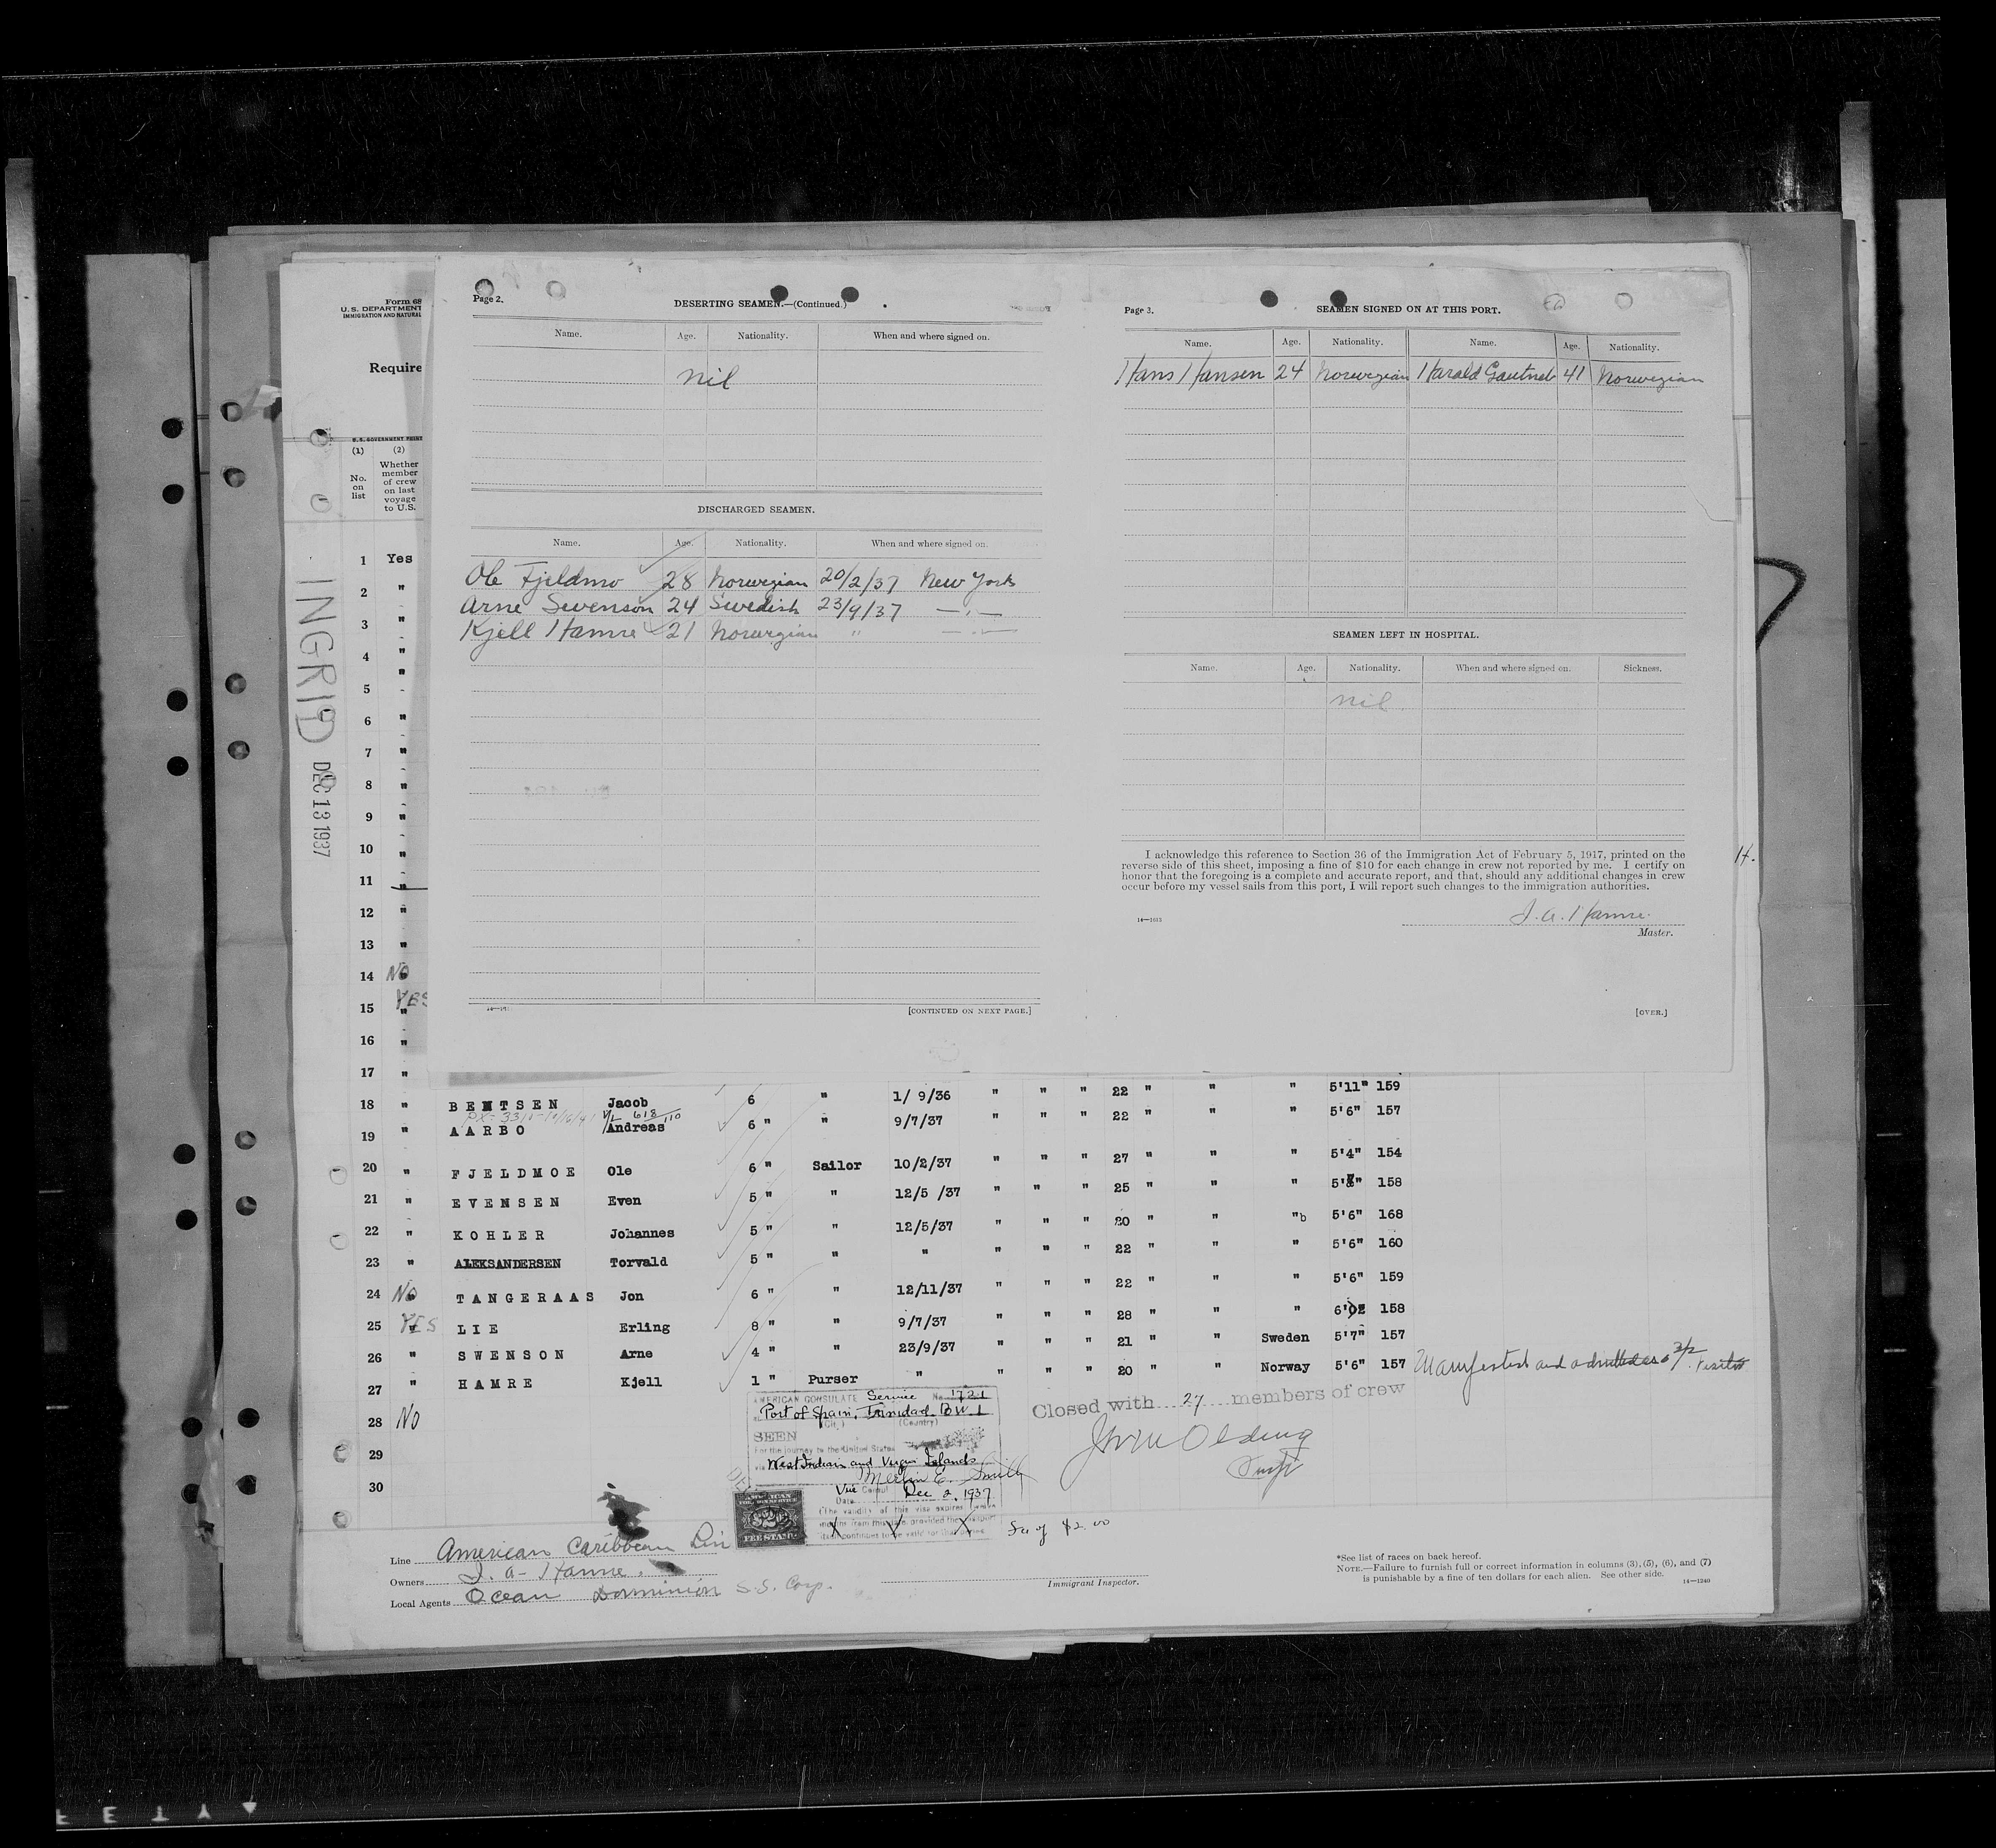 Form 68
U. S. DEPARTMENT
IMMIGRATION AND NATURAL
Require
U. S. GOVERNMENT PRINT
(1) (2)
No. on list
Whether member of crew on last voyage to U.S.
INGRID DEC 13 1937
1 Yes
2 "
3 "
4 "
5 "
6 "
7 "
8 "
9 "
10 "
11 "
12 "
13 "
14 NO
15 YES
16 "
17 "
Page 2.
DESERTING SEAMEN.—(Continued.)
Name. Age. Nationality. When and where signed on.
nil
DISCHARGED SEAMEN.
Name. Age. Nationality. When and where signed on.
Ole Fjeldmo 28 Norwegian 20/2/37 New York
Arne Swenson 24 Swedish 23/9/37 —"—
Kjell Hamre 21 Norwegian " —"—
[CONTINUED ON NEXT PAGE.]
Page 3.
SEAMEN SIGNED ON AT THIS PORT.
Name. Age. Nationality. Name. Age. Nationality.
Hans Hansen 24 Norwegian Harald Gautneb 41 Norwegian
SEAMEN LEFT IN HOSPITAL.
Name. Age. Nationality. When and where signed on. Sickness.
nil.
I acknowledge this reference to Section 36 of the Immigration Act of February 5, 1917, printed on the
reverse side of this sheet, imposing a fine of $10 for each change in crew not reported by me. I certify on
honor that the foregoing is a complete and accurate report, and that, should any additional changes in crew
occur before my vessel sails from this port, I will report such changes to the immigration authorities.
14—1613
J. A. Hamre.
Master.
[OVER.]
18 " BENTSEN Jacob 6 " 1/ 9/36 " " " 22 " " " 5'11" 159
19 " AARBO Andreas 6 " " 9/7/37 " " " 22 " " " 5'6" 157
20 " FJELDMOE Ole 6 " Sailor 10/2/37 " " " 27 " " " 5'4" 154
21 " EVENSEN Even 5 " " 12/5 /37 " " " 25 " " " 158
22 " KOHLER Johannes 5 " " 12/5/37 " " " 20 " " "b 5'6" 168
23 " ALEKSANDERSEN Torvald 5 " " " " " " 22 " " " 5'6" 160
24 NO TANGERAAS Jon 6 " " 12/11/37 " " " 22 " " " 5'6" 159
25 YES LIE Erling 8 " " 9/7/37 " " " 28 " " " 158
26 " SWENSON Arne 4 " " 23/9/37 " " " 21 " " Sweden 5'7" 157
27 " HAMRE Kjell 1 " Purser " " " " 20 " " Norway 5'6" 157 Manifested and admitted as
28 NO
29
30
AMERICAN CONSULATE Service No. 1721
Port of Spain, Trinidad. B W I
(City) (Country)
SEEN
For the journey to the United States
West Indian and Virgin Islands
Merlin E. Smith
Vice Consul
Date Dec 2, 1937
AMERICAN
FEE STAMP
Closed with 27 members of crew
Line American Caribbean Lin
Owners J. A. Hamre.
Local Agents Ocean Dominion S.S. Corp.
Immigrant Inspector.
*See list of races on back hereof.
NOTE.—Failure to furnish full or correct information in columns (3), (5), (6), and (7)
is punishable by a fine of ten dollars for each alien. See other side.
14—1240